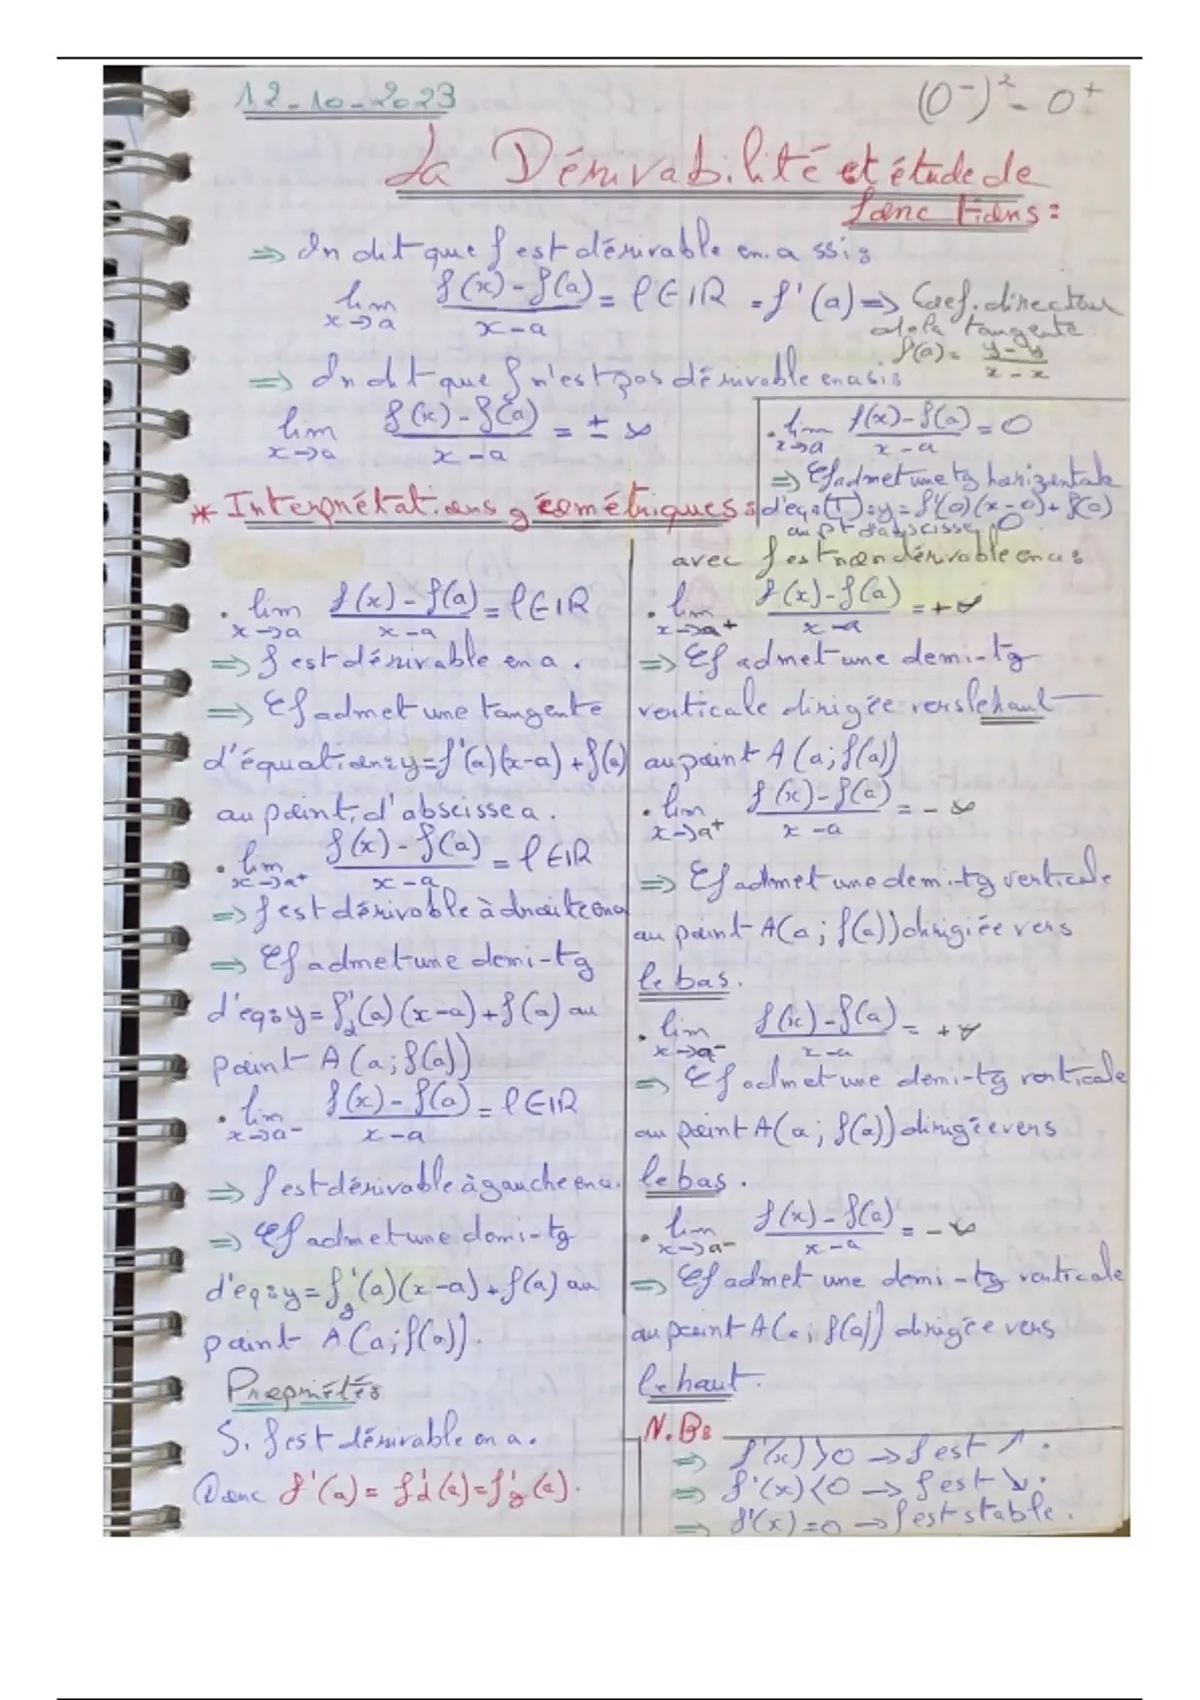 12-10-2023
(0⁻)² = 0⁺
La Dérivabilité et étude de
fonctions :
⇒ On dit que f est dérivable en a ssi :
lim x→a (f(x)-f(a))/(x-a) = l ∈ IR = f'(a) ⇒ Coef. directeur
de la tangente.
f'(a) = (y-y)/(x-x)
⇒ On dit que f n'est pas dérivable en a si :
lim x→a (f(x)-f(a))/(x-a) = ± ∞
• lim x→a (f(x)-f(a))/(x-a) = 0
⇒ Cf admet une tg horizontale
d'eq : (T) : y = f'(0)(x-0)+f(0)
au pt d'abscisse 0
* Interprétations géométriques :
• lim x→a (f(x)-f(a))/(x-a) = l ∈ IR
⇒ f est dérivable en a.
⇒ Cf admet une tangente
d'équation : y = f'(a)(x-a)+f(a)
au point d'abscisse a.
• lim x→a⁺ (f(x)-f(a))/(x-a) = l ∈ IR
⇒ f est dérivable à droite en a
⇒ Cf admet une demi-tg
d'eq : y = f'd(a)(x-a)+f(a) au
point A(a;f(a))
• lim x→a⁻ (f(x)-f(a))/(x-a) = l ∈ IR
⇒ f est dérivable à gauche en a.
⇒ Cf admet une demi-tg
d'eq : y = f'g(a)(x-a)+f(a) au
point A(a;f(a)).
Propriétés
S. f est dérivable en a.
Donc f'(a) = f'd(a) = f'g(a).
avec f est non dérivable en a :
• lim x→a⁺ (f(x)-f(a))/(x-a) = +∞
⇒ Cf admet une demi-tg
verticale dirigée vers le haut
au point A(a;f(a))
• lim x→a⁺ (f(x)-f(a))/(x-a) = -∞
⇒ Cf admet une demi-tg verticale
au point A(a;f(a)) dirigiée vers
le bas.
• lim x→a⁻ (f(x)-f(a))/(x-a) = +∞
⇒ Cf admet une demi-tg verticale
au point A(a;f(a)) dirigée vers
le bas.
• lim x→a⁻ (f(x)-f(a))/(x-a) = -∞
⇒ Cf admet une demi-tg verticale
au point A(a;f(a)) dirigée vers
le haut.
N.B :
⇒ f'(x) > 0 → f est ↗.
⇒ f'(x) < 0 → f est ↘.
⇒ f'(x) = 0 → f est stable.